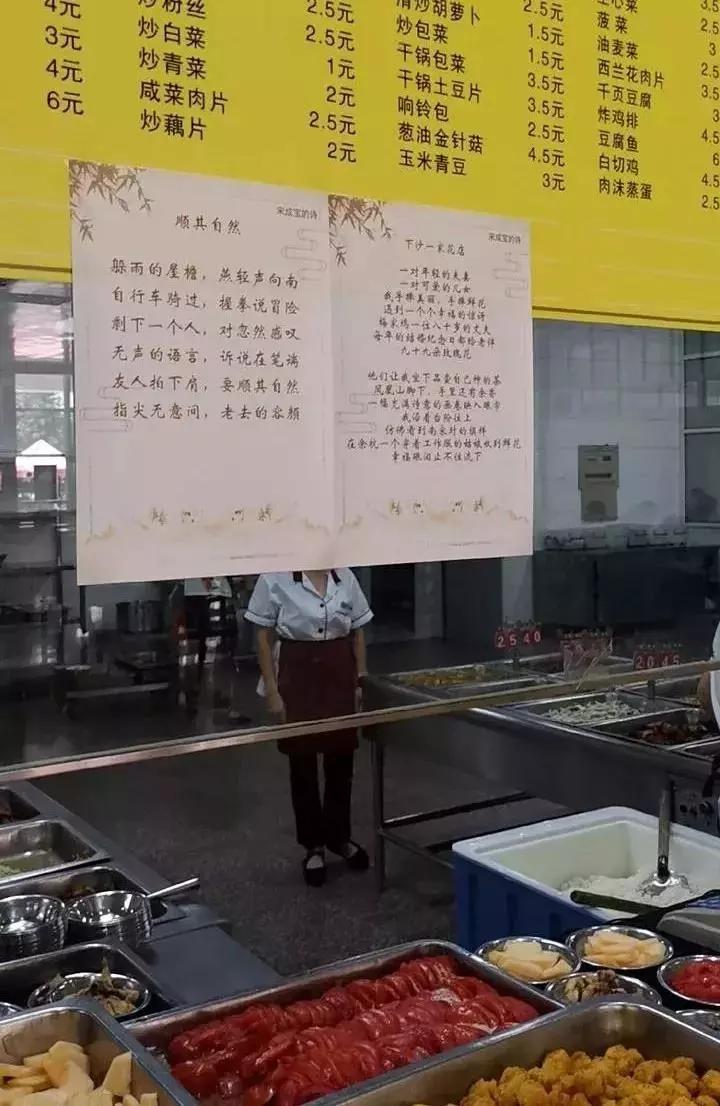 4元
3元
4元
6元
炒粉丝
炒白菜
炒青菜
咸菜肉片
炒藕片
2.5元
2.5元
1元
2元
2.5元
2元
清炒胡萝卜
炒包菜
干锅包菜
干锅土豆片
响铃包
葱油金针菇
玉米青豆
2.5元
1.5元
1.5元
3.5元
3.5元
2.5元
4.5元
3元
菠菜
油麦菜
西兰花肉片
千页豆腐
炸鸡排
豆腐鱼
白切鸡
肉沫蒸蛋
宋成宝的诗
顺其自然
躲雨的屋檐，燕轻声向南
自行车骑过，握拳说冒险
剩下一个人，对忽然感叹
无声的语言，诉说在笔端
友人拍下肩，要顺其自然
指尖无意间，老去的容颜
宋成宝的诗
下沙一家花店
一对年轻的夫妻
一对可爱的儿女
我手捧美丽，手捧鲜花
遇到一个个幸福的惊讶
梅家坞一位八十岁的丈夫
每年的结婚纪念日都给老伴
九十九朵玫瑰花
他们让我坐下品壶自己种的茶
凤凰山脚下，手里还有余香
一幅充满诗意的画卷映入眼帘
我沿着台阶往上
仿佛看到南宋时的模样
在余杭一个穿着工作服的姑娘收到鲜花
幸福眼泪止不住流下
2540
2045